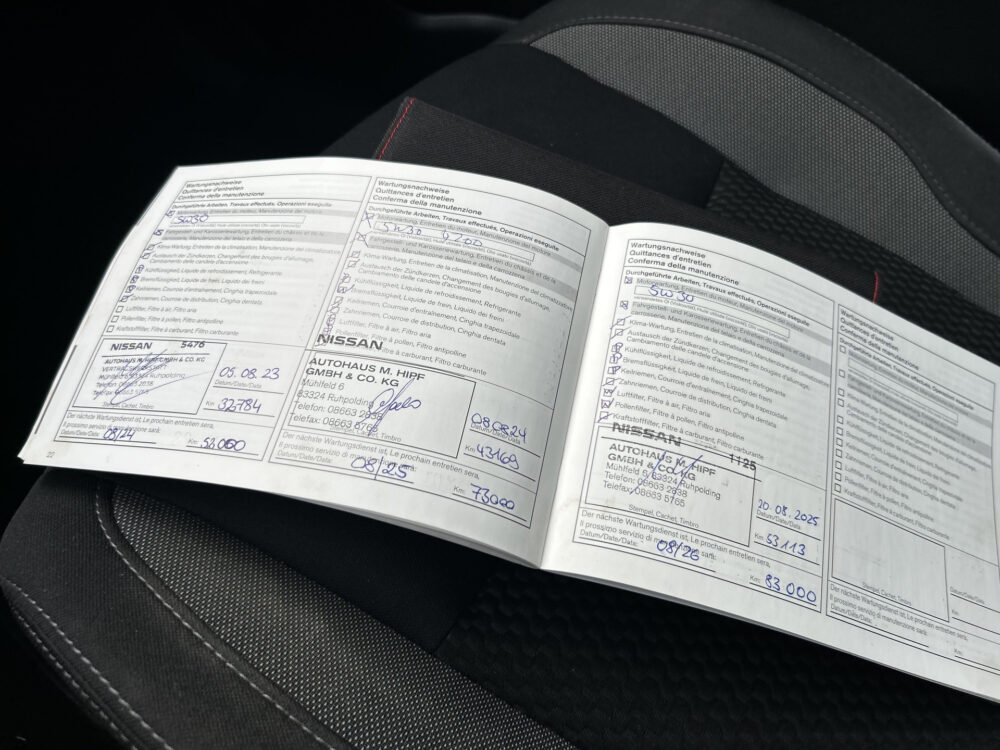 Wartungsnachweise
Quittances d'entretien
Conferma della manutenzione
Durchgeführte Arbeiten, Travaux effectués, Operazioni eseguite
Motorwartung, Entretien du moteur, Manutenzione del motore
5W30
Fahrgestell- und Karosseriewartung, Entretien du châssis et de la
carrosserie, Manutenzione del telaio e della carrozzeria
Klima-Wartung, Entretien de la climatisation, Manutenzione del climatizzatore
Austausch der Zündkerzen, Changement des bougies d'allumage,
Cambiamento delle candele d'accensione
Kühlflüssigkeit, Liquide de refroidissement, Refrigerante
Bremsflüssigkeit, Liquide de frein, Liquido dei freni
Keilriemen, Courroie d'entraînement, Cinghia trapezoidale
Zahnriemen, Courroie de distribution, Cinghia dentata
Luftfilter, Filtre à air, Filtro aria
Pollenfilter, Filtre à pollen, Filtro antipolline
Kraftstofffilter, Filtre à carburant, Filtro carburante
NISSAN 5476
AUTOHAUS M. HIPF GMBH & CO. KG
Telefon: 08663 2838
Stempel, Cachet, Timbro
05.08.23
Datum/Date/Data
Km: 32784
Der nächste Wartungsdienst ist, Le prochain entretien sera,
Il prossimo servizio di manutenzione sarà:
Datum/Date/Data: 08/24
Km: 52.000
22
Wartungsnachweise
Quittances d'entretien
Conferma della manutenzione
Durchgeführte Arbeiten, Travaux effectués, Operazioni eseguite
Motorwartung, Entretien du moteur, Manutenzione del motore
5W30
Fahrgestell- und Karosseriewartung, Entretien du châssis et de la
carrosserie, Manutenzione del telaio e della carrozzeria
Klima-Wartung, Entretien de la climatisation, Manutenzione del climatizzatore
Austausch der Zündkerzen, Changement des bougies d'allumage,
Cambiamento delle candele d'accensione
Kühlflüssigkeit, Liquide de refroidissement, Refrigerante
Bremsflüssigkeit, Liquide de frein, Liquido dei freni
Keilriemen, Courroie d'entraînement, Cinghia trapezoidale
Zahnriemen, Courroie de distribution, Cinghia dentata
Luftfilter, Filtre à air, Filtro aria
Pollenfilter, Filtre à pollen, Filtro antipolline
Filtre à carburant, Filtro carburante
NISSAN
AUTOHAUS M. HIPF
GMBH & CO. KG
Mühlfeld 6
83324 Ruhpolding
Telefon: 08663 2838
Telefax: 08663 5765
Cachet, Timbro
08.08.24
Datum/Date/Data
Km: 43169
Der nächste Wartungsdienst ist, Le prochain entretien sera,
Il prossimo servizio di manutenzione sarà:
Datum/Date/Data: 08/25
Km: 73000
Wartungsnachweise
Quittances d'entretien
Conferma della manutenzione
Durchgeführte Arbeiten, Travaux effectués, Operazioni eseguite
Motorwartung, Entretien du moteur, Manutenzione del motore
5W30
Fahrgestell- und Karosseriewartung, Entretien du châssis et de la
carrosserie, Manutenzione del telaio e della carrozzeria
Klima-Wartung, Entretien de la climatisation, Manutenzione del climatizzatore
Austausch der Zündkerzen, Changement des bougies d'allumage,
Cambiamento delle candele d'accensione
Kühlflüssigkeit, Liquide de refroidissement, Refrigerante
Bremsflüssigkeit, Liquide de frein, Liquido dei freni
Keilriemen, Courroie d'entraînement, Cinghia trapezoidale
Zahnriemen, Courroie de distribution, Cinghia dentata
Luftfilter, Filtre à air, Filtro aria
Pollenfilter, Filtre à pollen, Filtro antipolline
Kraftstofffilter, Filtre à carburant, Filtro carburante
NISSAN 1125
AUTOHAUS M. HIPF
GMBH & CO. KG
Mühlfeld 6, 83324 Ruhpolding
Telefon: 08663 2838
Telefax: 08663 5765
Stempel, Cachet, Timbro
20.08.2025
Datum/Date/Data
Km: 53113
Der nächste Wartungsdienst ist, Le prochain entretien sera,
Il prossimo servizio di manutenzione sarà:
Datum/Date/Data: 08/26
Km: 83 000
Wartungsnachweise
Quittances d'entretien
Conferma della manutenzione
Durchgeführte Arbeiten, Travaux
Motorwartung, Entretien du
Fahrgestell- und
carrosserie, Manutenzione
Klima-Wartung, Entretien de la
Austausch der Zündkerzen,
Cambiamento delle candele
Kühlflüssigkeit, Liquide de
Bremsflüssigkeit, Liquide de frein,
Keilriemen, Courroie d'entraînement,
Zahnriemen, Courroie de distribution, Cinghia
Luftfilter, Filtre à air, Filtro aria
Pollenfilter, Filtre à pollen, Filtro antipolline
Kraftstofffilter, Filtre à carburant, Filtro carburante
Stempel, Cachet, Timbro
Datum/Date/Data
Km:
Der nächste Wartungsdienst ist, Le prochain entretien sera,
Il prossimo servizio di manutenzione sarà:
Datum/Date/Data:
Km: